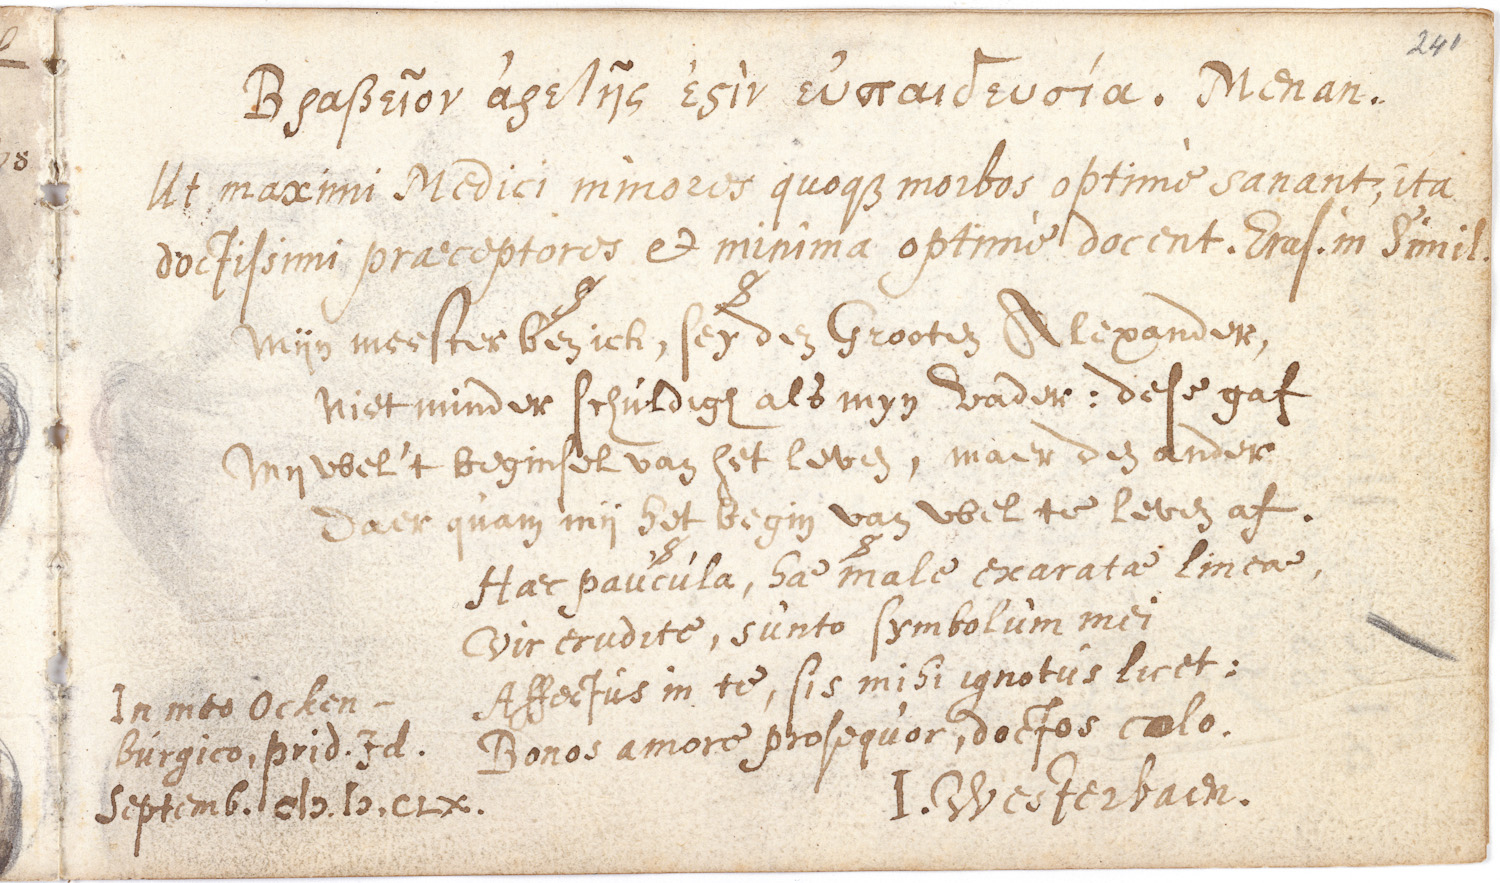 241
Βραβεῖον ἀρετῆς ἐςὶν εὐπαιδευσία. Menan.
Ut maximi Medici minores quoqꝫ morbos optimè sanant, ita
doctissimi præceptores & minima optimè docent. Eras. in Simil.
Mijn meester ben ich, sey den Grooten Alexander,
Niet minder schuldigh als myn vader: dese gaf
Mij wel't beginsel van het leven, maer den ander
Daer quam mij het begin van wel te leven af.
Haec paucula, hae male exaratae lineae,
Vir erudite, sunto symbolum mei
Affectus in te, sis mihi ignotus licet:
Bonos amore prosequor, doctos colo.
In meo Ocken-
burgico, prid. Id.
Septemb. cIɔ.Iɔ.CLX.
I. Westerbaen.